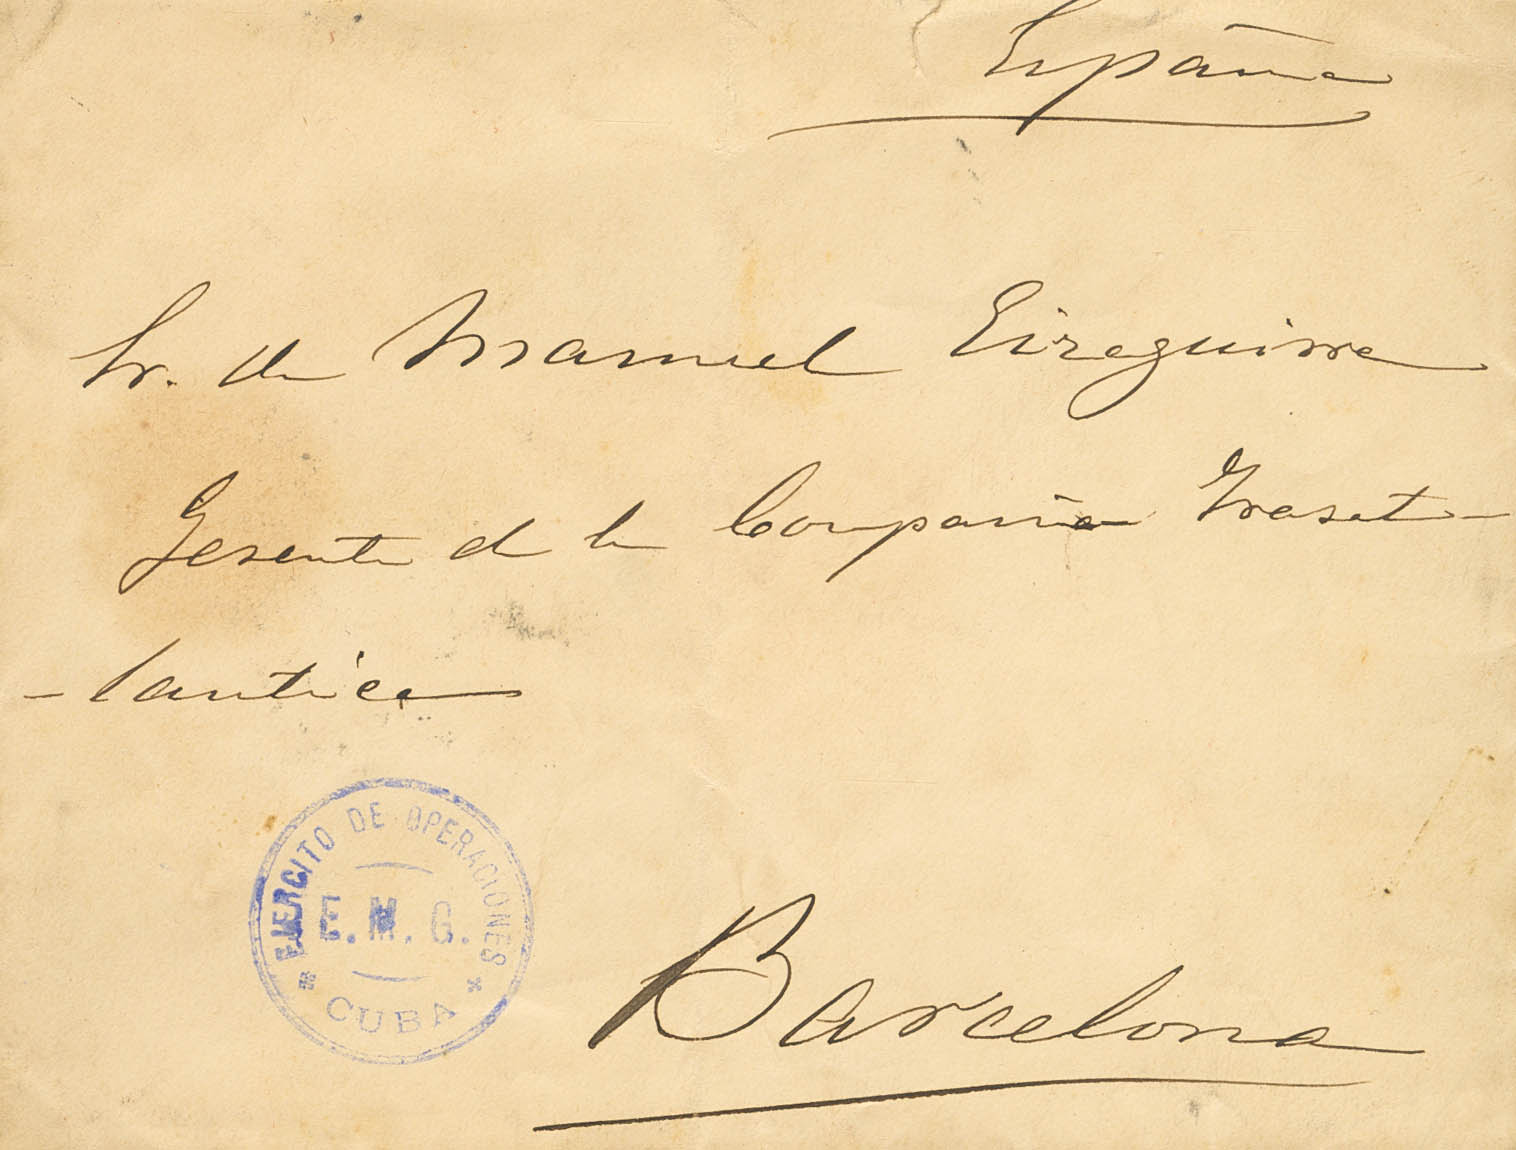 España
Sr. Dn Manuel Eizaguirre
Gerente de la Compañia Trasat-
-lantica
EJERCITO DE OPERACIONES
E. M. G.
* CUBA *
Barcelona